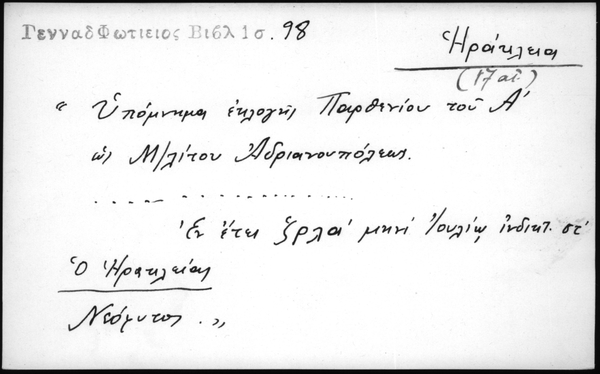 ΓενναδΦωτιειος Βιβλ 1 σ. 98
Ἡράκλεια
(17 αἰ.)
“ Ὑπόμνημα ἐκλογῆς Παρθενίου τοῦ Α'
ὡς Μ/λίτου Ἀδριανουπόλεως.
..... ..............
Ἐν ἔτει ζρλα' μηνί Ἰουλίῳ ἰνδικτ. στ'
Ὁ Ἡρακλείας
Νεόφυτος . „